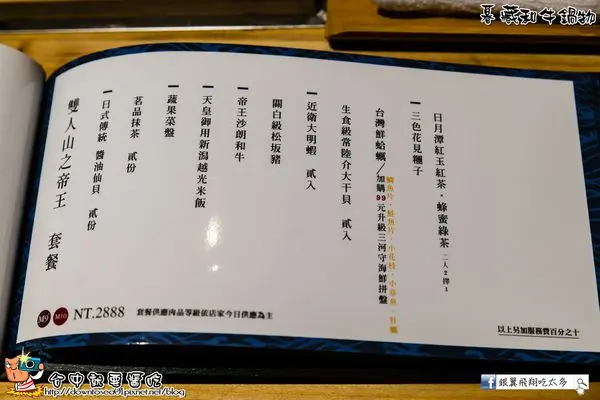 暮藏和牛鍋物
雙人山之帝王 套餐
日式傳統 醬油仙貝 貳份
茗品抹茶 貳份
蔬果菜盤
天皇御用新潟越光米飯
帝王沙朗和牛
關白級松坂豬
近衛大明蝦 貳入
生食級常陸介大干貝 貳入
台灣鮮蛤蠣/加購99元升級三河守海鮮拼盤
鯛魚片、鮭魚片、小花枝、小章魚、牡蠣
三色花見糰子
日月潭紅玉紅茶.蜂蜜綠茶 二人2擇1
M9 M10 NT.2888 套餐供應肉品等級依店家今日供應為主
以上另加服務費百分之十
台中銀翼嚐吃
http://downtosee01.pixnet.net/blog
銀翼飛翔吃太多